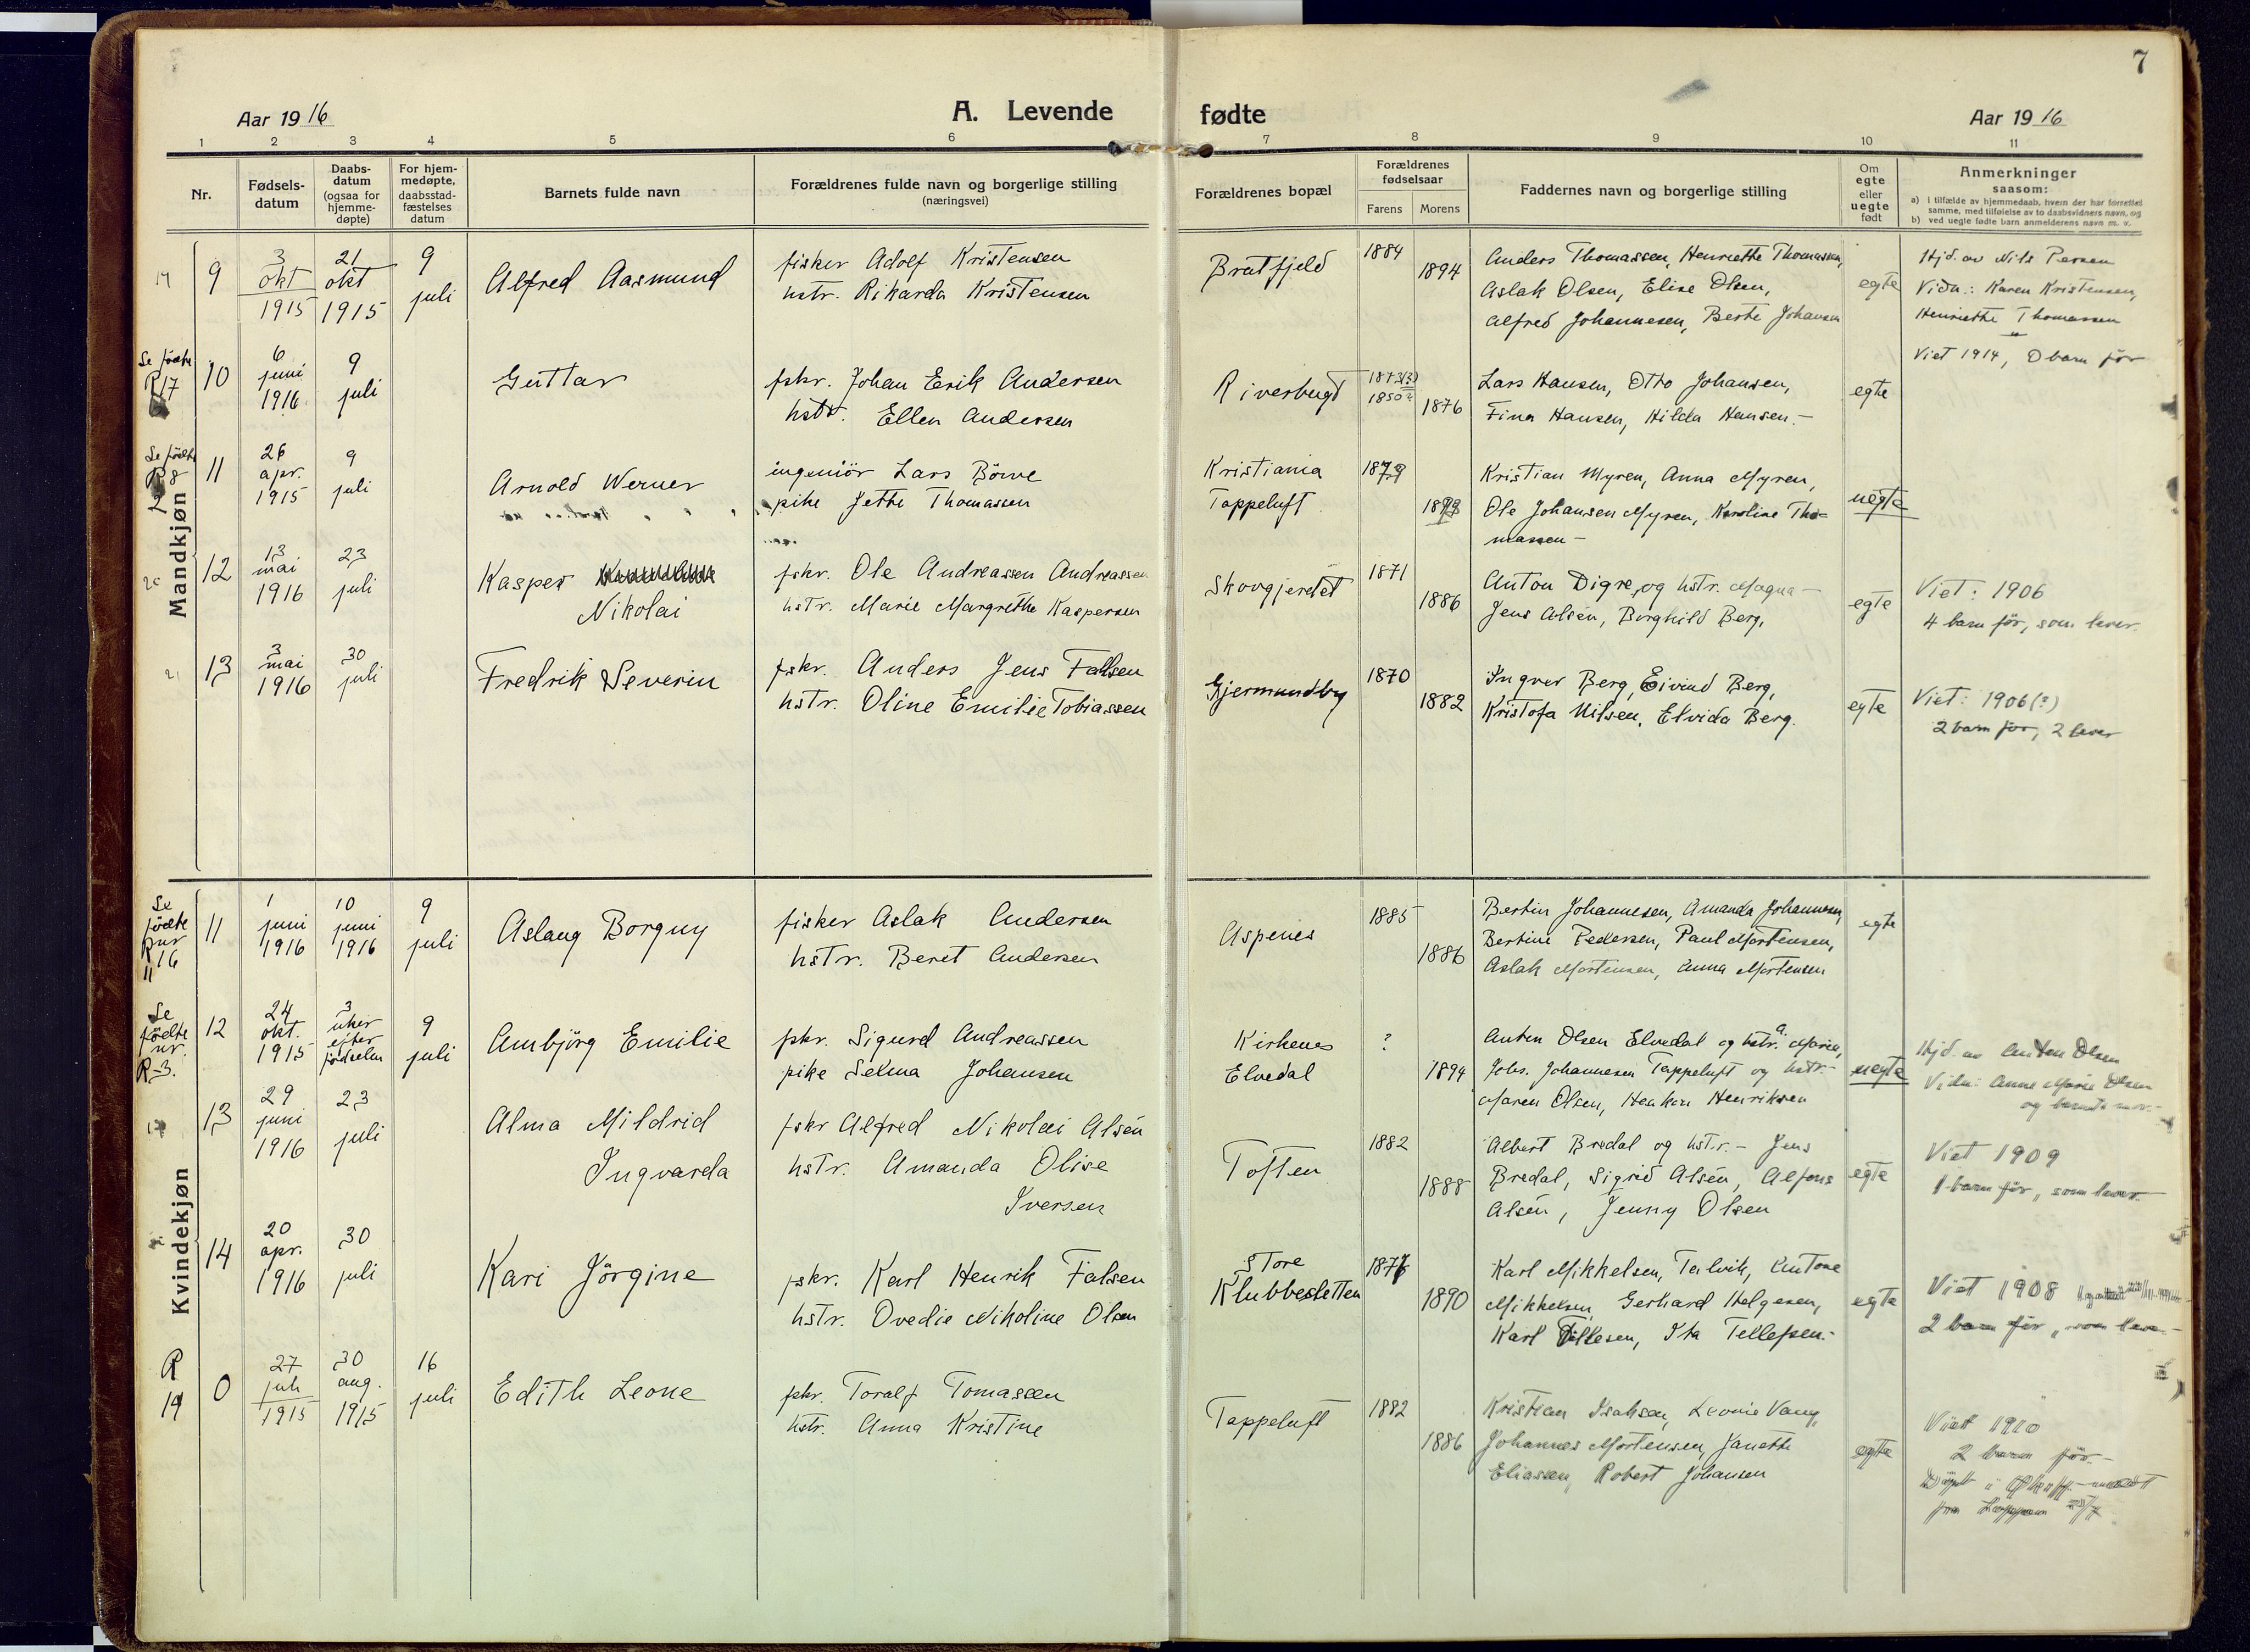 7
Aar 1916 A. Levende fødte Aar 1916
1 2 3 4 5 6 7 8 9 10 11
Nr.
Fødsels-
datum
Daabs-
datum
(ogsaa for
hjemme-
døpte)
For hjem-
medøpte,
daabsstad-
fæstelses
datum
Barnets fulde navn
Forældrenes fulde navn og borgerlige stilling
(næringsvei)
Forældrenes bopæl
Forældrenes
fødselsaar
Farens Morens
Faddernes navn og borgerlige stilling
Om
egte
eller
uegte
født
Anmerkninger
saasom:
a) i tilfælde av hjemmedaab, hvem der har forrettet
samme, med tilføielse av to daabsvidners navn, og
b) ved uegte fødte barn anmelderens navn m. v.
Mandkjøn
9
3
okt
1915
21
okt
1915
9
juli
Alfred Aasmund
fisker Adolf Kristensen
hstr. Rikarda Kristensen
Bratfjeld
1884
1894
Anders Thomassen, Henriette Thomassen,
Aslak Olsen, Elise Olsen,
Alfred Johannesen, Berte Johansen
egte
Hjd. av Nils Persen
Vidn.: Karen Kristensen,
Henriette Thomassen
Viet 1914, 0 barn før
Se fødte
R 17
10
6
juni
1916
9
juli
Guttar
fskr. Johan Erik Andersen
hstr. Ellen Andersen
Riverbugt
1873(?)
1850?
1876
Lars Hansen, Otto Johansen,
Fina Hansen, Hilda Hansen.-
egte
Se fødte
R 8
11
26
apr.
1915
9
juli
Arnold Werner
ingeniör Lars Börve
pike Jette Thomassen
Kristiania
Tappeluft
1879
Kristian Myren, Anna Myren,
Ole Johansen Myren, Karoline Tho=
massen -
uegte
12
13
mai
1916
23
juli
Kasper
Nikolai
fskr. Ole Andreassen Andreassen
hstr. Marie Margrethe Kaspersen
Skovgjerdet
1871
1886
Anton Digre, og hstr. Magna -
Jens Alsén, Borghild Berg,
egte
Viet: 1906
4 barn før, som lever.
13
3
mai
1916
30
juli
Fredrik Severin
fskr. Anders Jens Falsen
hstr. Oline Emilie Tobiassen
Gjermundby
1870
1882
Ingver Berg, Eivind Berg,
Kristofa Nilsen, Elvida Berg.
egte
Viet: 1906(?)
2 barn før, 2 lever
Kvindekjøn
Se
fødte
R nr
16
11
1
juni
1916
10
juni
1916
9
juli
Aslaug Borguy
fisker Aslak Andersen
hstr. Beret Andersen
Aspenes
1885
1886
Bertin Johannesen, Amanda Johannesen,
Bertine Pedersen, Paul Mortensen,
Aslak Mortensen, Anna Mortensen
egte
Se
fødte
nr.
R-3.
12
24
okt.
1915
3
uker
efter
fødselen
9
juli
Ambjörg Emilie
fskr. Sigurd Andreassen
pike Selma Johansen
Kirkenes
Elvedal
?
1894
Anton Olsen Elvedal og hstr. A. Marie,
Johs. Johannesen Tappeluft og hstr.-
Maren Olsen, Heakon Henriksen
uegte
Hjd. av Anton Olsen
Vidn: Anne Marie Olsen
og barnets mor.-
13
29
juni
1916
23
juli
Alma Mildrid
Ingvarda
fskr Alfred Nikolai Alsén
hstr. Amanda Olise
Iversen
Toften
1882
1888
Albert Bredal og hstr.- Jens
Bredal, Sigrid Alsén, Alfons
Alsén, Jenny Olsen
egte
Viet 1909
1 barn før, som lever.
14
20
apr.
1916
30
juli
Kari Jörgine
fskr. Karl Henrik Falsen
hstr. Ovedie Nikoline Olsen
Store
Klubbesletten
1890
Karl Mikkelsen, Talvik, Antone
Mikkelsen, Gerhard Helgesen,
Karl Tellesen, Ida Tellefsen.-
egte
Viet 1908
2 barn før, som lever.-
R
19
0
27
juli
1915
30
aug.
1915
16
juli
Edith Leone
fskr. Toralf Tomassen
hstr. Anna Kristine
Tappeluft
1882
1886
Kristian Isaksen, Leonie Vang,
Johannes Mortensen, Janette
Eliassen, Robert Johansen
egte
Viet 1910
2 barn før.-